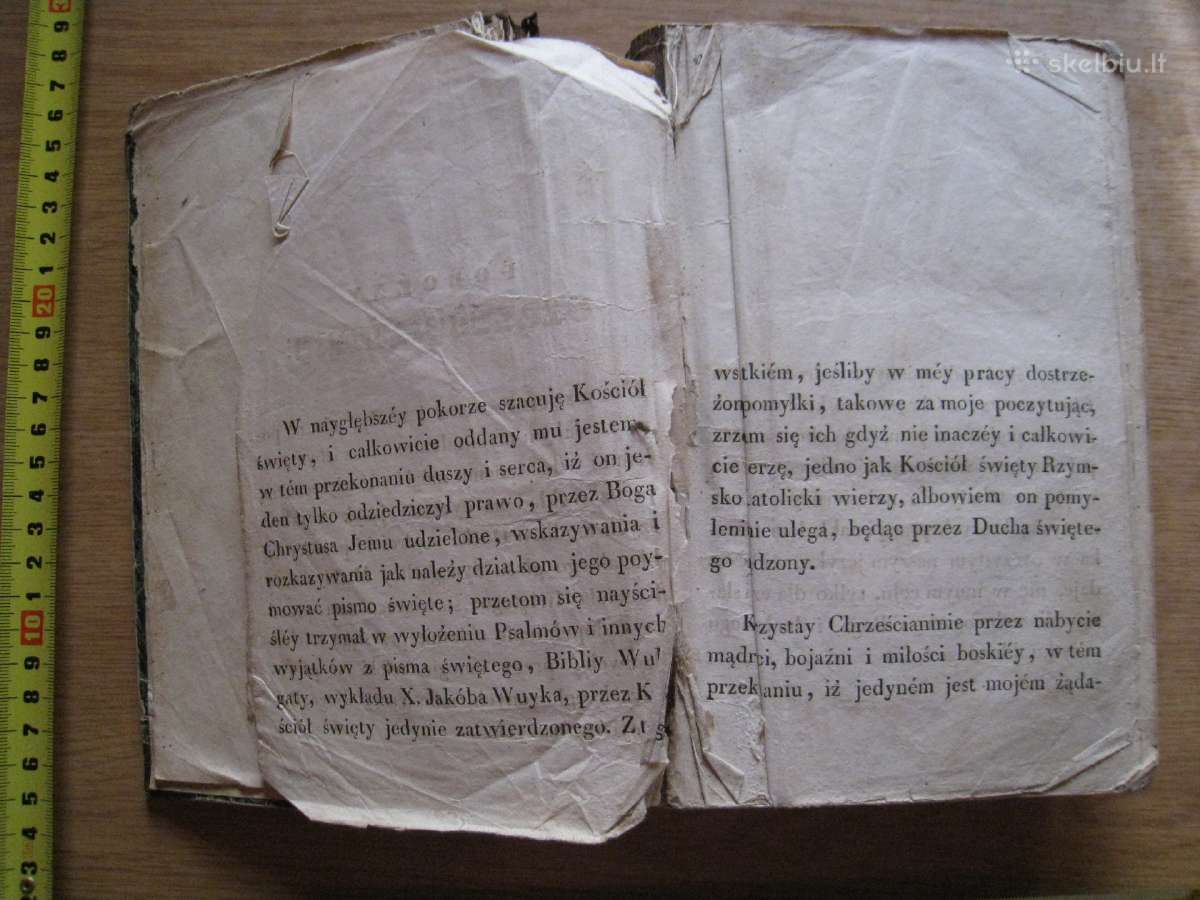 skelbiu.lt
W naygłębszéy pokorze szacuję Kościół
święty, i całkowicie oddany mu jestem
w tém przekonaniu duszy i serca, iż on je-
den tylko odziedziczył prawo, przez Boga
Chrystusa Jemu udzielone, wskazywania i
rozkazywania jak należy dziatkom jego poy-
mować pismo święte; przetom się nayści-
śléy trzymał w wyłożeniu Psalmów i innych
wyjątków z pisma świętego, Bibliy Wul
gaty, wykładu X. Jakóba Wuyka, przez K
ściół święty jedynie zatwierdzonego. Z t
wstkiém, jeśliby w méy pracy dostrze-
żon pomyłki, takowe za moje poczytując,
zrzem się ich gdyż nie inaczéy i całkowi-
cie erzę, jedno jak Kościół święty Rzym-
sko atolicki wierzy, albowiem on pomy-
leni nie ulega, będąc przez Ducha święte-
go ądzony.
Kzystay Chrześcianinie przez nabycie
mądrci, bojaźni i miłości boskiéy, w tém
przekaniu, iż jedyném jest mojém żąda-
3 4 5 6 7 8 9 10 1 2 3 4 5 6 7 8 9 20 1 2 3 4 5 6 7 8 9